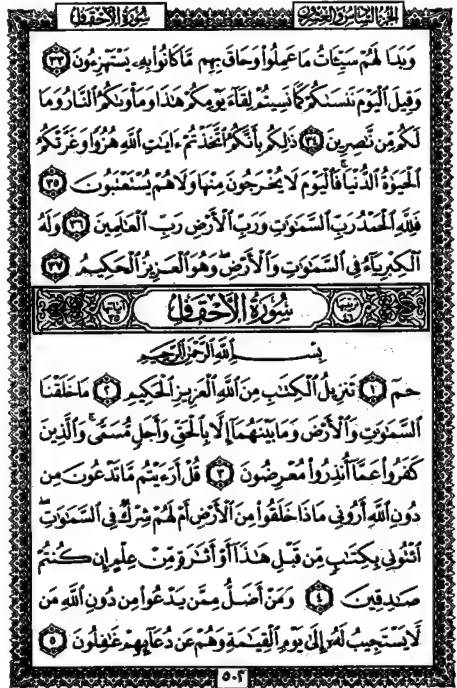 الجزء السادس والعشرون
سورة الأحقاف
وَبَدَا لَهُمْ سَيِّـَٔاتُ مَا عَمِلُوا۟ وَحَاقَ بِهِم مَّا كَانُوا۟ بِهِۦ يَسْتَهْزِءُونَ ٣٣
وَقِيلَ ٱلْيَوْمَ نَنسَىٰكُمْ كَمَا نَسِيتُمْ لِقَآءَ يَوْمِكُمْ هَـٰذَا وَمَأْوَىٰكُمُ ٱلنَّارُ وَمَا
لَكُم مِّن نَّـٰصِرِينَ ٣٤ ذَٰلِكُم بِأَنَّكُمُ ٱتَّخَذْتُمْ ءَايَـٰتِ ٱللَّهِ هُزُوًا وَغَرَّتْكُمُ
ٱلْحَيَوٰةُ ٱلدُّنْيَا ۚ فَٱلْيَوْمَ لَا يُخْرَجُونَ مِنْهَا وَلَا هُمْ يُسْتَعْتَبُونَ ٣٥
فَلِلَّهِ ٱلْحَمْدُ رَبِّ ٱلسَّمَـٰوَٰتِ وَرَبِّ ٱلْأَرْضِ رَبِّ ٱلْعَـٰلَمِينَ ٣٦ وَلَهُ
ٱلْكِبْرِيَآءُ فِى ٱلسَّمَـٰوَٰتِ وَٱلْأَرْضِ ۖ وَهُوَ ٱلْعَزِيزُ ٱلْحَكِيمُ ٣٧
ترتيبها ٤٦ سورة الأحقاف آياتها ٣٥
بِسْمِ ٱللَّهِ ٱلرَّحْمَـٰنِ ٱلرَّحِيمِ
حمٓ ١ تَنزِيلُ ٱلْكِتَـٰبِ مِنَ ٱللَّهِ ٱلْعَزِيزِ ٱلْحَكِيمِ ٢ مَا خَلَقْنَا
ٱلسَّمَـٰوَٰتِ وَٱلْأَرْضَ وَمَا بَيْنَهُمَآ إِلَّا بِٱلْحَقِّ وَأَجَلٍ مُّسَمًّى ۚ وَٱلَّذِينَ
كَفَرُوا۟ عَمَّآ أُنذِرُوا۟ مُعْرِضُونَ ٣ قُلْ أَرَءَيْتُم مَّا تَدْعُونَ مِن
دُونِ ٱللَّهِ أَرُونِى مَاذَا خَلَقُوا۟ مِنَ ٱلْأَرْضِ أَمْ لَهُمْ شِرْكٌ فِى ٱلسَّمَـٰوَٰتِ ۖ
ٱئْتُونِى بِكِتَـٰبٍ مِّن قَبْلِ هَـٰذَآ أَوْ أَثَـٰرَةٍ مِّنْ عِلْمٍ إِن كُنتُمْ
صَـٰدِقِينَ ٤ وَمَنْ أَضَلُّ مِمَّن يَدْعُوا۟ مِن دُونِ ٱللَّهِ مَن
لَّا يَسْتَجِيبُ لَهُۥٓ إِلَىٰ يَوْمِ ٱلْقِيَـٰمَةِ وَهُمْ عَن دُعَآئِهِمْ غَـٰفِلُونَ ٥
٥٠٢